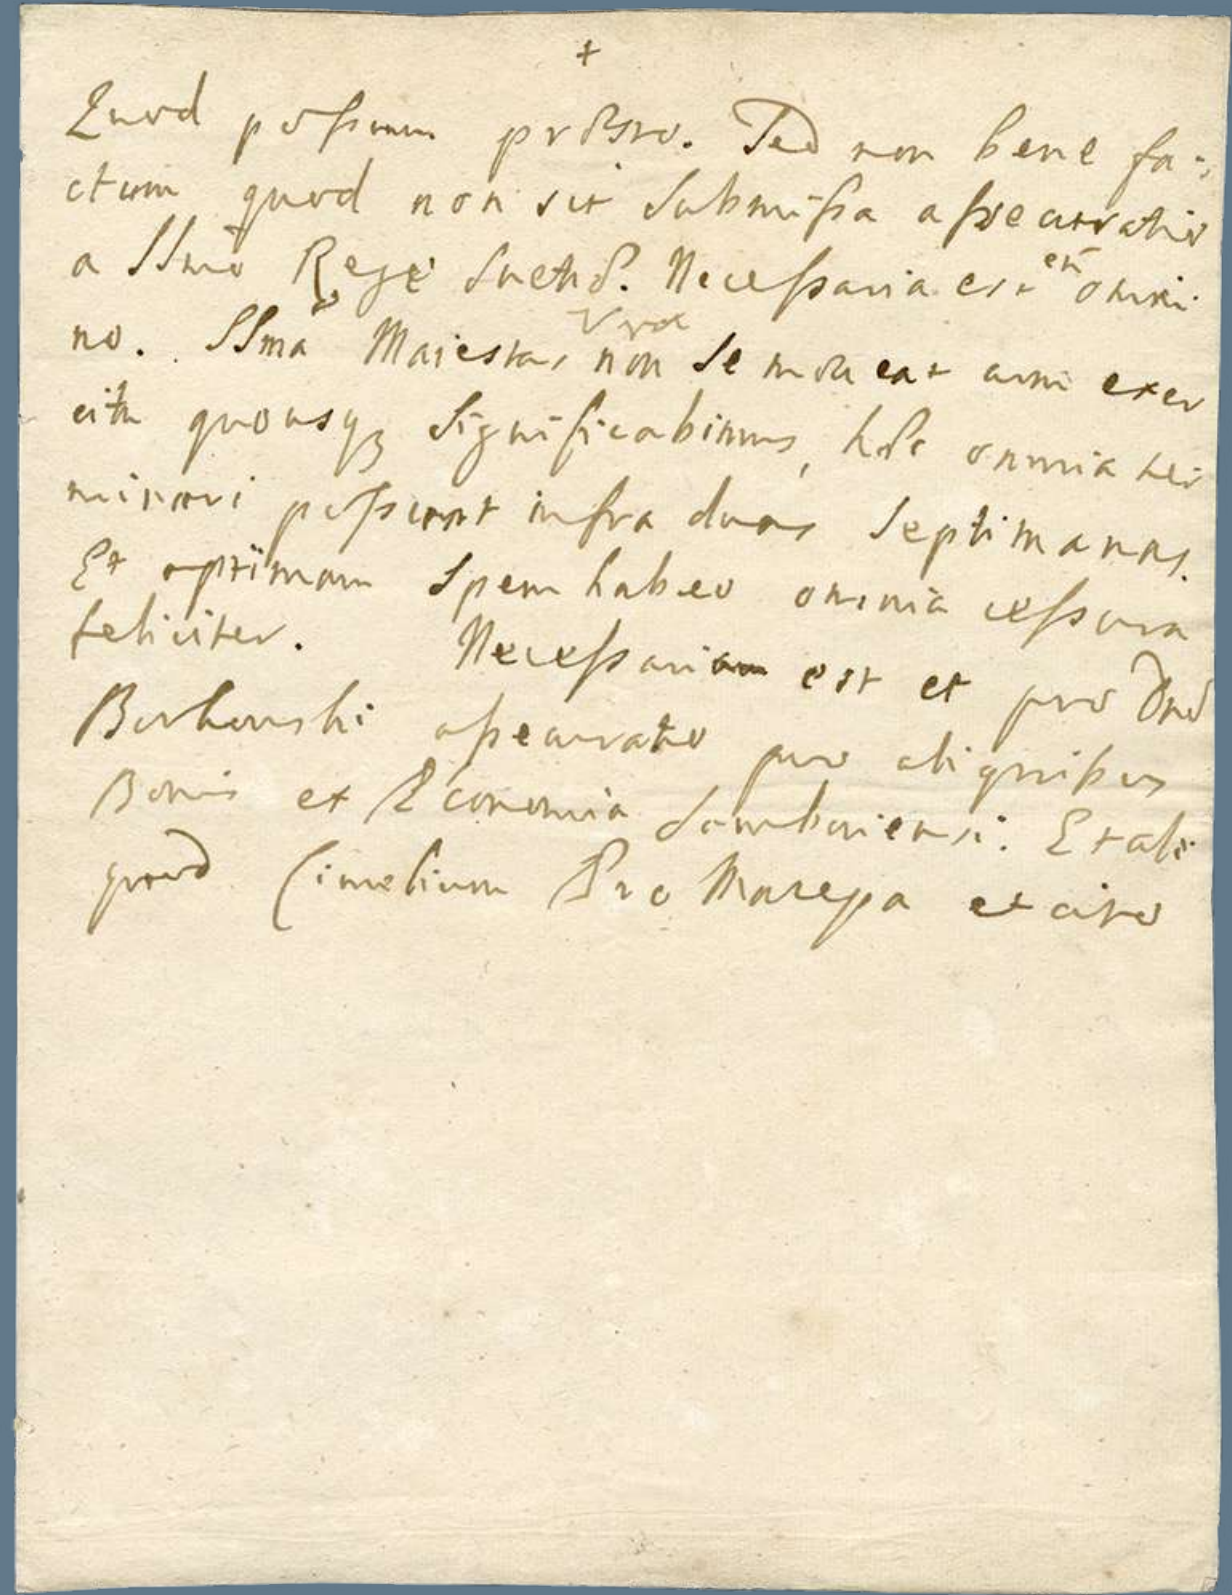 +
Quod possum prosto. Sed non bene fa-
ctum quod non sit submissa assecuratio
a SSmo Rege Suetiae. Necessaria est en omni-
no. SSma Maiestas Vra non se moveat cum exer
citu quousq; significabimus, hoc omnia ter
minari possunt infra duas septimanas.
Et optimam spem habeo omnia cessura
feliciter. Necessariam est et pro Dno
Borkowski assecuratio pro aliquibus
Bonis et Economia Samboriensi. Et ali
quod Cimelium Pro Mazepa et cito